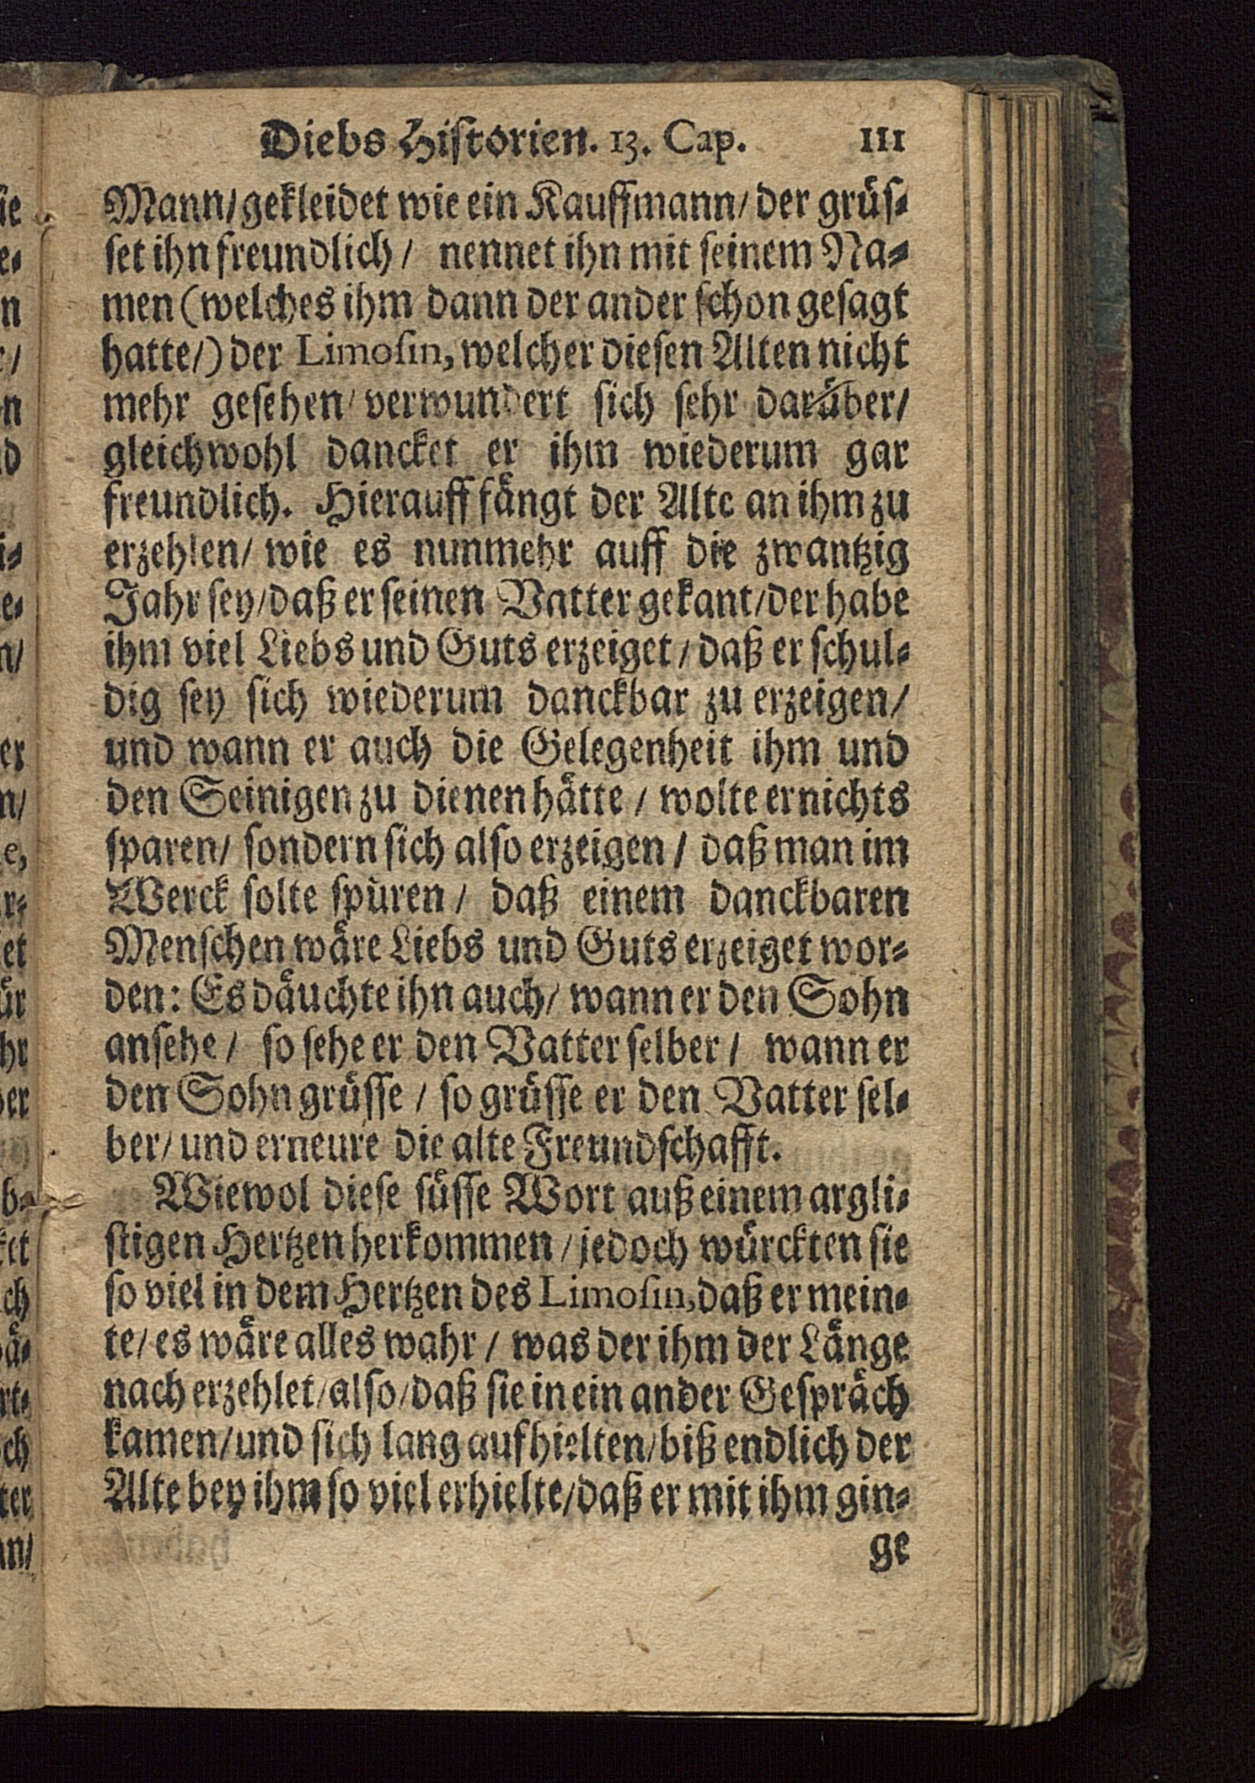 Diebs Historien. 13. Cap. 111
Mann/gekleidet wie ein Kauffmann/ der grüs-
set ihn freundlich/ nennet ihn mit seinem Na-
men (welches ihm dann der ander schon gesagt
hatte/) der Limosin, welcher diesen Alten nicht
mehr gesehen/ verwundert sich sehr darüber/
gleichwohl dancket er ihm wiederum gar
freundlich. Hierauff fängt der Alte an ihm zu
erzehlen/ wie es nunmehr auff die zwantzig
Jahr sey/daß er seinen Vatter gekant/der habe
ihm viel Liebs und Guts erzeiget/ daß er schul-
dig sey sich wiederum danckbar zu erzeigen/
und wann er auch die Gelegenheit ihm und
den Seinigen zu dienen hätte / wolte er nichts
sparen/ sondern sich also erzeigen / daß man im
Werck solte spüren / daß einem danckbaren
Menschen wäre Liebs und Guts erzeiget wor-
den: Es däuchte ihn auch/ wann er den Sohn
ansehe / so sehe er den Vatter selber / wann er
den Sohn grüsse / so grüsse er den Vatter sel-
ber/ und erneure die alte Freundschafft.
Wiewol diese süsse Wort auß einem argli-
stigen Hertzen herkommen / jedoch würckten sie
so viel in dem Hertzen des Limosin, daß er mein-
te/ es wäre alles wahr / was der ihm der Länge
nach erzehlet/also/daß sie in ein ander Gespräch
kamen/und sich lang aufhielten/biß endlich der
Alte bey ihm so viel erhielte/daß er mit ihm gin-
ge